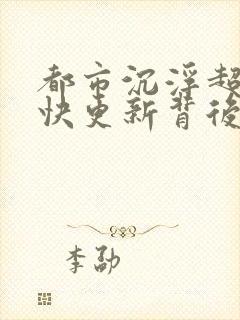 都市沉浮超
快更新背后
李劭